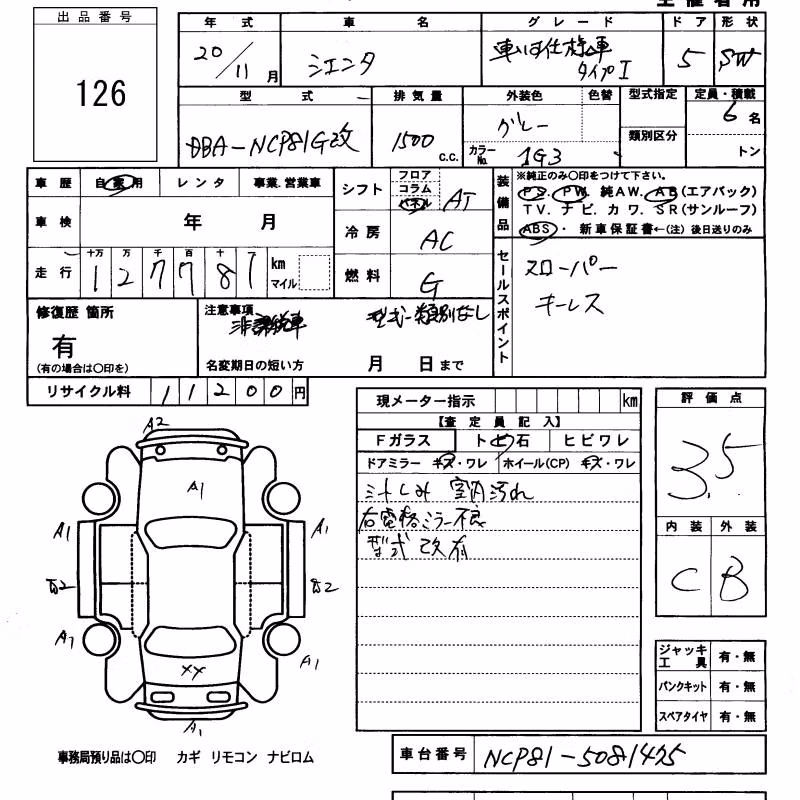 出品番号
126
年式 車名 グレード ドア 形状
20/11月 シエンタ 車いす仕様車 タイプI 5 SW
型式 排気量 外装色 色替 型式指定 定員・積載
DBA-NCP81G改 1500 C.C. グレー 6名
カラーNo. 1G3 類別区分 トン
車歴 自家用 レンタ 事業.営業車 シフト フロア コラム パネル AT
装備品 ※純正のみ〇印をつけて下さい。
PS. PW. 純AW. AB(エアバック)
TV. ナビ. カワ. SR(サンルーフ)
ABS・ 新車保証書←(注) 後日送りのみ
車検 年 月 冷房 AC
走行 十万 万 千 百 十
127781 km マイル 燃料 G
セールスポイント スローパー
キーレス
修復歴 箇所
有
(有の場合は〇印を)
注意事項
非課税車 型式類別なし
名変期日の短い方 月 日まで
リサイクル料 11200円
現メーター指示 km
【査定員記入】
Fガラス トビ石 ヒビワレ
ドアミラー キズ・ワレ ホイール(CP) キズ・ワレ
シートしみ 室内汚れ
右電格ミラー不良
型式 改有
評価点
3.5
内装 外装
C B
A2
A1
A1 A1
A1 A1
XX
A1
ジャッキ工具 有・無
パンクキット 有・無
スペアタイヤ 有・無
事務局預り品は〇印 カギ リモコン ナビロム
車台番号 NCP81-5081475